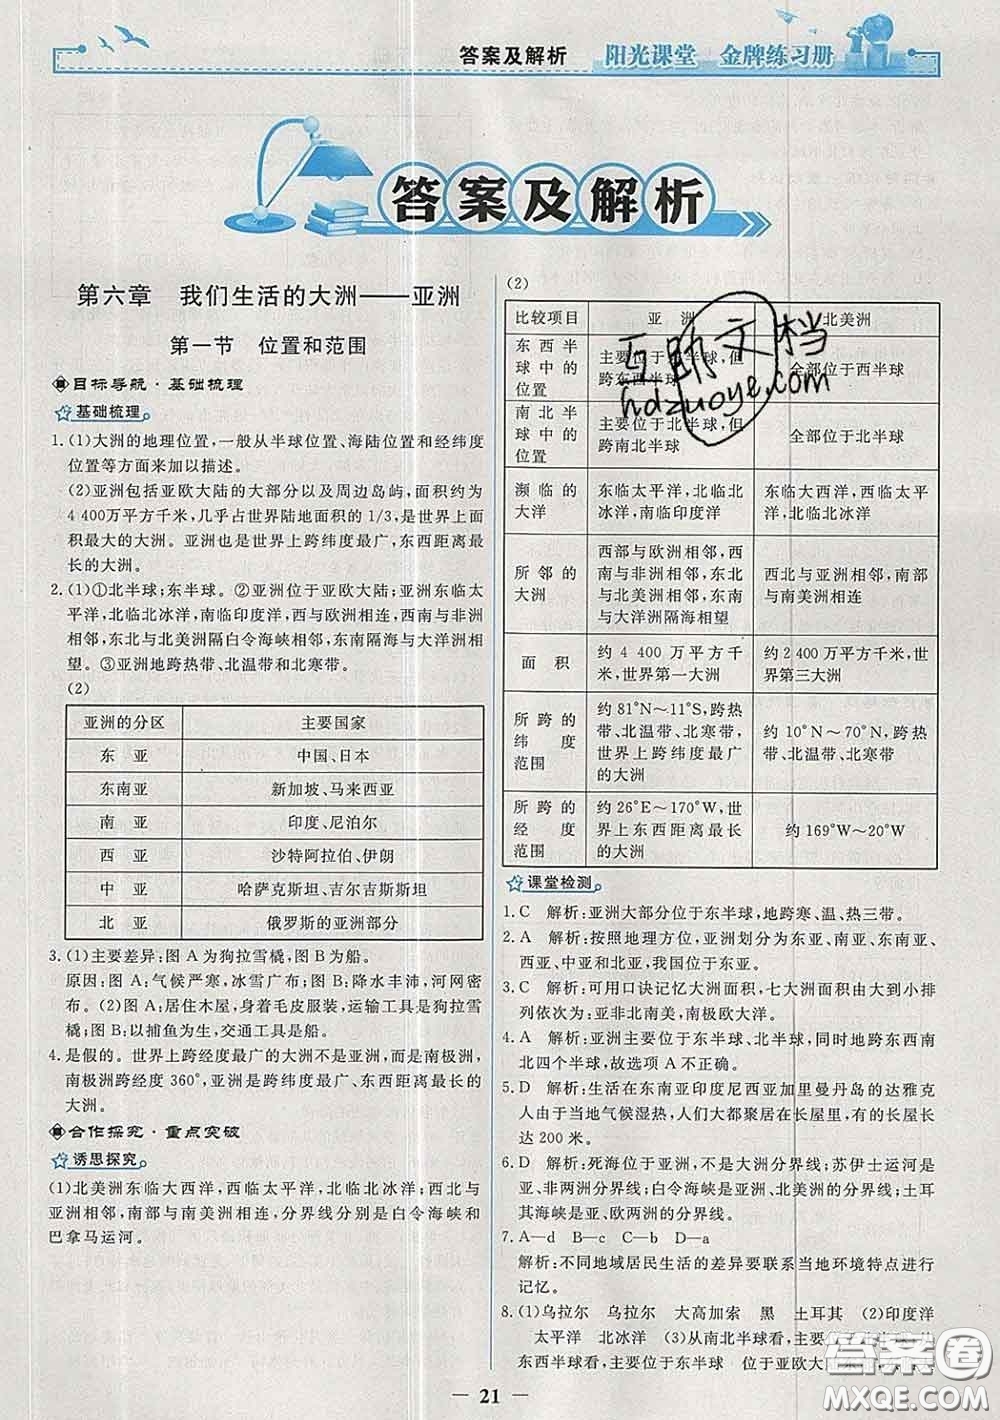 答案及解析
阳光课堂 金牌练习册
答案及解析
第六章 我们生活的大洲——亚洲
第一节 位置和范围
目标导航·基础梳理
基础梳理
1.(1)大洲的地理位置,一般从半球位置、海陆位置和经纬度
位置等方面来加以描述。
(2)亚洲包括亚欧大陆的大部分以及周边岛屿,面积约为
4 400万平方千米,几乎占世界陆地面积的1/3,是世界上面
积最大的大洲。亚洲也是世界上跨纬度最广,东西距离最
长的大洲。
2.(1)①北半球;东半球。②亚洲位于亚欧大陆;亚洲东临太
平洋,北临北冰洋,南临印度洋,西与欧洲相连,西南与非洲
相邻,东北与北美洲隔白令海峡相邻,东南隔海与大洋洲相
望。③亚洲地跨热带、北温带和北寒带。
(2)
亚洲的分区 主要国家
东 亚 中国、日本
东南亚 新加坡、马来西亚
南 亚 印度、尼泊尔
西 亚 沙特阿拉伯、伊朗
中 亚 哈萨克斯坦、吉尔吉斯斯坦
北 亚 俄罗斯的亚洲部分
3.(1)主要差异:图A为狗拉雪橇,图B为船。
原因:图A:气候严寒,冰雪广布;图B:降水丰沛,河网密
布。(2)图A:居住木屋,身着毛皮服装,运输工具是狗拉雪
橇;图B:以捕鱼为生,交通工具是船。
4.是假的。世界上跨经度最广的大洲不是亚洲,而是南极洲,
南极洲跨经度360°,亚洲是跨纬度最广、东西距离最长的大
洲。
合作探究·重点突破
诱思探究
(1)北美洲东临大西洋,西临太平洋,北临北冰洋;西北与
亚洲相邻,南部与南美洲相连,分界线分别是白令海峡和
巴拿马运河。
(2)
比较项目 亚 洲 北美洲
东西半球中的位置 主要位于东半球,但跨东西半球 全部位于西半球
南北半球中的位置 主要位于北半球,但跨南北半球 全部位于北半球
濒临的大洋 东临太平洋,北临北冰洋,南临印度洋 东临大西洋,西临太平洋,北临北冰洋
所邻的大洲 西部与欧洲相邻,西南与非洲相邻,东北与北美洲相邻,东南与大洋洲隔海相望 西北与亚洲相邻,南部与南美洲相连
面 积 约4 400万平方千米,世界第一大洲 约2 400万平方千米,世界第三大洲
所跨的纬度范围 约81°N~11°S,跨热带、北温带、北寒带,世界上跨纬度最广的大洲 约10°N~70°N,跨热带、北温带、北寒带
所跨的经度范围 约26°E~170°W,世界上东西距离最长的大洲 约169°W~20°W
课堂检测
1.C 解析:亚洲大部分位于东半球,地跨寒、温、热三带。
2.A 解析:按照地理方位,亚洲划分为东亚、南亚、东南亚、
西亚、中亚和北亚,我国位于东亚。
3.C 解析:可用口诀记忆大洲面积,七大洲面积由大到小排
列依次为:亚非北南美,南极欧大洋。
4.A 解析:亚洲主要位于东半球、北半球,同时地跨东西南
北四个半球,故选项A不正确。
5.D 解析:生活在东南亚印度尼西亚加里曼丹岛的达雅克
人由于当地气候湿热,人们大都聚居在长屋里,有的长屋长
达200米。
6.D 解析:死海位于亚洲,不是大洲分界线;苏伊士运河是
亚、非两洲分界线;白令海峡是亚洲、北美洲的分界线;土耳
其海峡是亚、欧两洲的分界线。
7.A—d B—c C—b D—a
解析:不同地域居民生活的差异要联系当地环境特点进行
记忆。
8.(1)乌拉尔 乌拉尔 大高加索 黑 土耳其 (2)印度洋
太平洋 北冰洋 (3)从南北半球看,主要位于北半球 从
东西半球看,主要位于东半球 位于亚欧大陆东部
21
互助文档
hdzuoye.com
答案圈
MXQE.COM